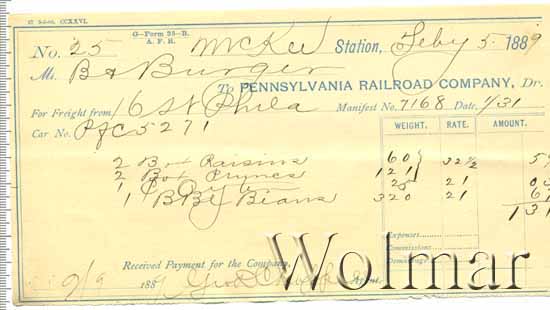 G—Form 28—B.
A. F. R.
No. 25 McKee Station, Feby 5 1889
M B A Burger
To PENNSYLVANIA RAILROAD COMPANY, Dr.
For Freight from 16 St Phila Manifest No. 7168 Date, 1/31
Car No. P&C 5271
WEIGHT. RATE. AMOUNT.
2 Box Raisins 60 32½
2 Box Prunes 121
1 25 21
1 BBl Beans 320 21 6
131
Expenses
Commissions
Received Payment for the Company,
2/9 188 Agent.
Wolmar